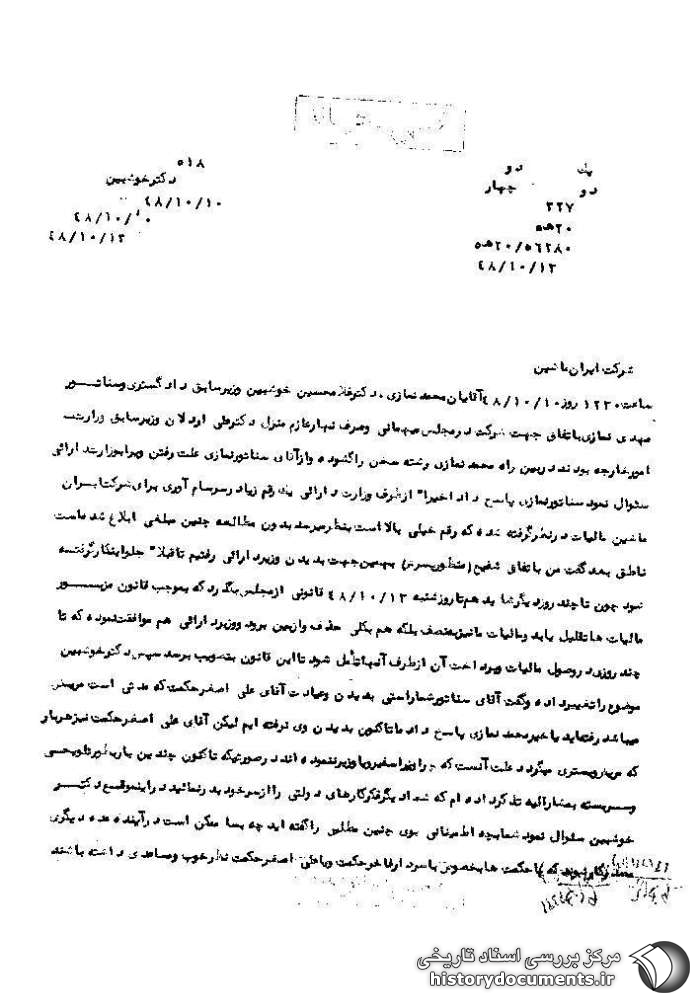 یک دو
دو چهار
۲۲۷
۲۰هـ۵
۲۰/۵۶۲۸۰هـ۵
۴۸/۱۰/۱۳
۵۱۸
دکترخوشبین
۴۸/۱۰/۱۰
۴۸/۱۰/۱۰
۴۸/۱۰/۱۲
شرکت ایران ماشین
ساعت ۱۲۳۰ روز ۴۸/۱۰/۱۰ آقایان محمد نمازی ، دکترغلامحسین خوشبین وزیرسابق دادگستری وسناتور
مهدی نمازی باتفاق جهت شرکت درمجلس میهمانی وصرف نهارعازم منزل دکترعلی اردلان وزیرسابق وزارت
امورخارجه بودند دربین راه محمد نمازی رشته سخن راگشوده وازآقای سناتورنمازی علت رفتن ویرابوزارت دارائی
سئوال نمود سناتورنمازی پاسخ داد اخیرا" ازطرف وزارت دارائی یک رقم زیاد وسرسام آوری برای شرکت ایران
ماشین مالیات درنظرگرفته شده که رقم خیلی بالا است بنظرمیرسد بدون مطالعه چنین مبلغی ابلاغ شده است
ناطق بعد گفت من باتفاق شفیع (منظورپسرش) بهمین جهت بدیدن وزیردارائی رفتیم تاقبلا" جلواینکارگرفته
شود چون تاچند روزدیگرشاید هم تاروزشنبه ۴۸/۱۰/۱۳ قانونی ازمجلس بگذرد که بموجب قانون مزبور
مالیات ها تقلیل یابد ومالیات مانیزبه نصف بلکه هم بکلی حذف وازبین برود ووزیردارائی هم موافقت نموده که تا
چند روزی در وصول مالیات وپرداخت آن ازطرف آنهاتأمل شود تااین قانون بتصویب برسد سپس دکترخوشبین
موضوع راتغییرداده وگفت آقای سناتورشماراستی بدیدن وعیادت آقای علی اصغرحکمت که مدتی است مریض
میباشد رفته‌اید یاخیرمحمد نمازی پاسخ داد ماتاکنون بدیدن وی نرفته ایم لیکن آقای علی اصغرحکمت نیزهربار
که مریض وبستری میگردد علت آنست که چرااوراسفیرویاوزیرننموده اند درصورتیکه تاکنون چندین باربطورتلویحی
وسربسته بمشارالیه تذکرداده ام که شما دیگرفکرکارهای دولتی راازسرخود بدرنمائید دراینموقع دکتر
خوشبین سئوال نمود شمابچه اطمینانی بوی چنین مطلبی راگفته اید چه بسا ممکن است درآینده عده دیگری
که باحکمت هابخصوص باسردارفاخرحکمت ویاعلی اصغرحکمت نظرخوب ومساعدی داشته باشند
مرکز بررسی اسناد تاریخی
historydocuments.ir